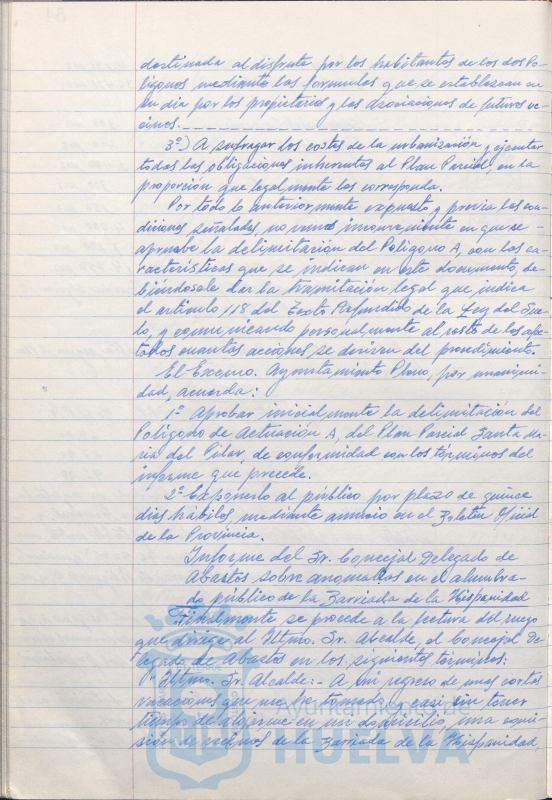 destinada al disfrute por los habitantes de los dos Po-
lígonos mediante las formulas que se establezcan en
su dia por los propietarios y las Asociaciones de futuros ve-
cinos.
3º) A sufragar los costes de la urbanización y ejecutar
todas las obligaciones inherentes al Plan Parcial, en la
proporción que legalmente les corresponda.
Por todo lo anteriormente expuesto y previa las con-
diciones señaladas, no vemos inconveniente en que se
apruebe la delimitación del Polígono A, con las ca-
racterísticas que se indican en este documento, de-
biéndosele dar la tramitación legal que indica
el artículo 118 del Texto Refundido de la Ley del Sue-
lo, y comunicando personalmente al resto de los afec-
tados cuantas acciones se deriven del procedimiento.
El Excmo. Ayuntamiento Pleno, por unanimi-
dad, acuerda:
1º Aprobar inicialmente la delimitación del
Polígono de Actuación A, del Plan Parcial Santa Ma-
ria del Pilar, de conformidad con los términos del
informe que precede.
2º Exponerlo al público por plazo de quince
dias hábiles, mediante anuncio en el Boletín Oficial
de la Provincia.
Informe del Sr. Concejal Delegado de
Abastos sobre anomalías en el alumbra-
do público de la Barriada de la Hispanidad
Finalmente se procede a la lectura del ruego
que dirige al Iltmo. Sr. Alcalde, el Concejal De-
legado de Abastos en los siguientes términos:
Iltmo. Sr. Alcalde:- A mi regreso de unas cortas
vacaciones que me he tomado y casi sin tener
tiempo de en mi domicilio, una comi-
sión de vecinos de la Barriada de la Hispanidad,
Ayuntamiento de
HUELVA